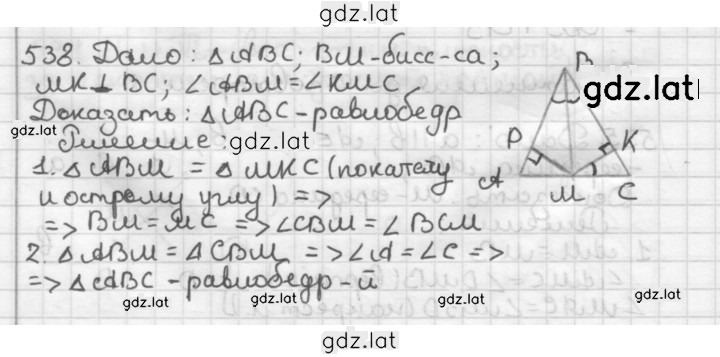 gdz.lat
538. Дано: △ABC; BM-бисс-са;
MK⊥BC; ∠ABM=∠KMC
Доказать: △ABC-равнобедр
gdz.lat
Решение: gdz.lat
1. △ABM = △MKC (по катету
и острому углу) =>
=> BM=MC => ∠CBM=∠BCM
2. △ABM=△CBM => ∠A=∠C =>
=> △ABC -равнобедр-й
gdz.lat gdz.lat gdz.lat
B
gdz.lat
P K
A M C
gdz.lat
gdz.lat